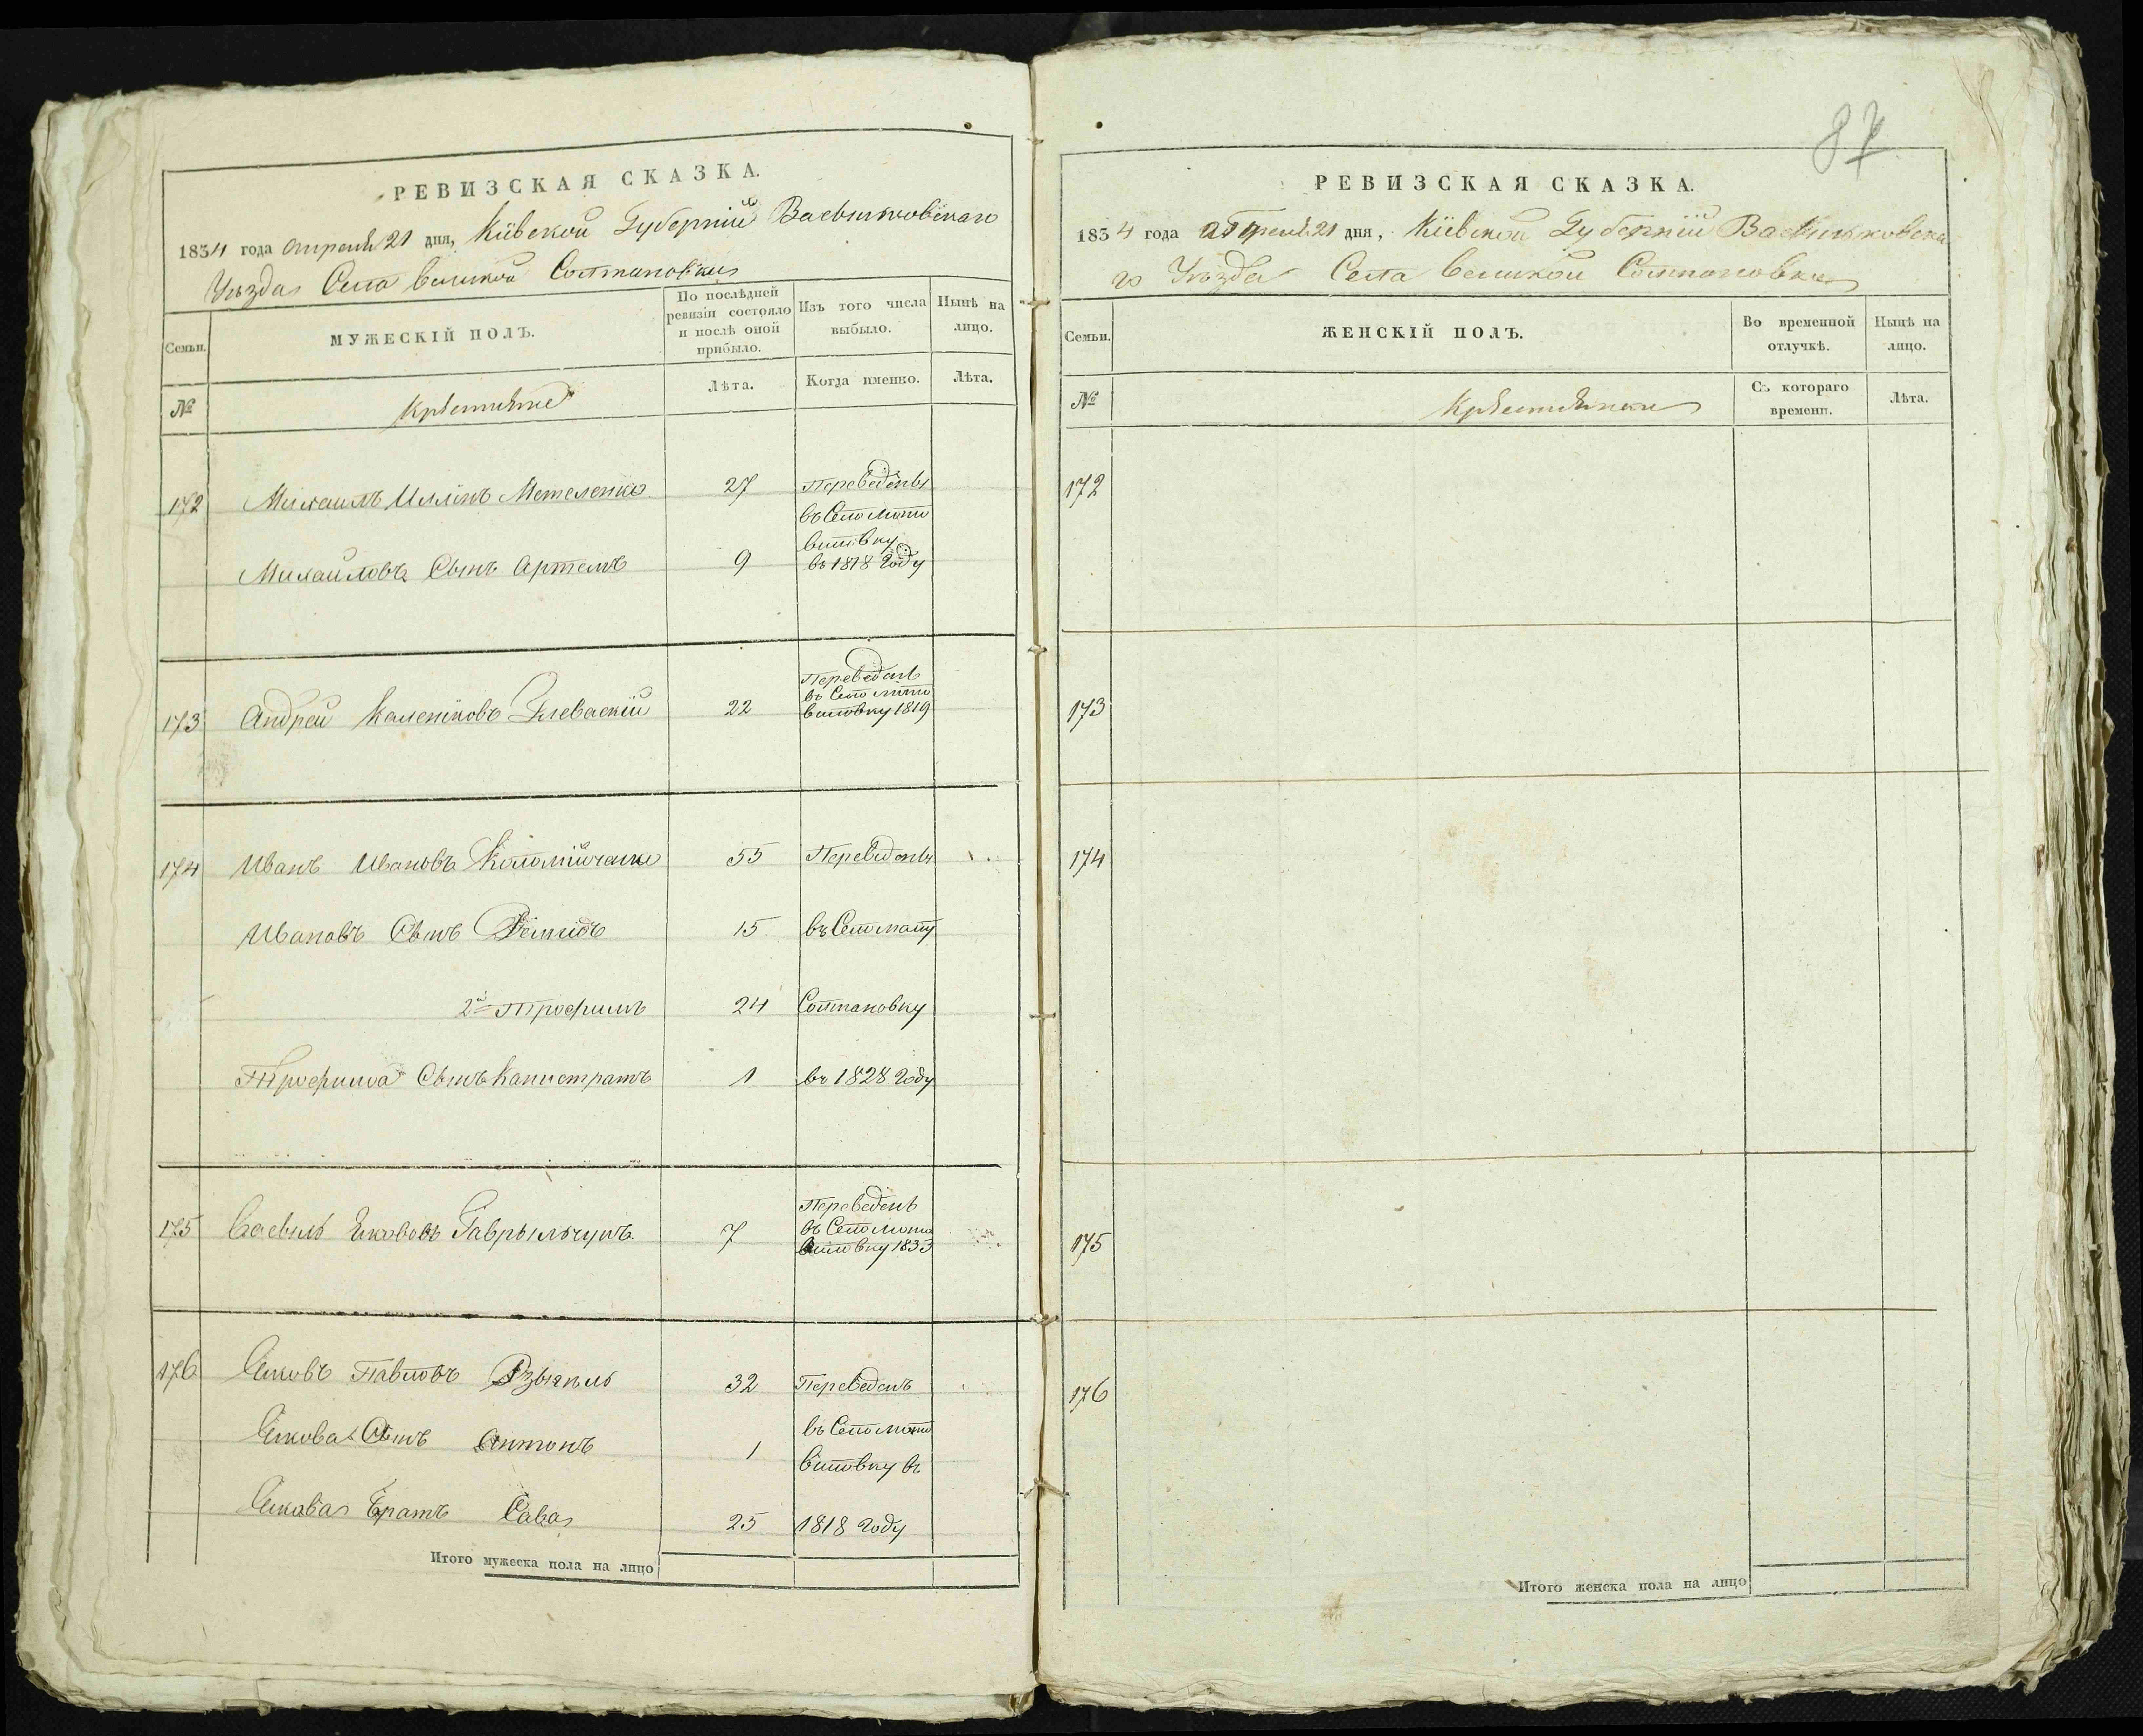 РЕВИЗСКАЯ СКАЗКА.
1834 года Апреля 21 дня, Кіевской Губерніи Васильковскаго
Уезда Села Великой Солтановки
Семьи.
МУЖЕСКІЙ ПОЛЪ.
По послѣдней ревизіи состояло и послѣ оной прибыло.
Изъ того числа выбыло.
Нынѣ на лицо.
№
Крестяне
Лѣта.
Когда именно.
Лѣта.
172 Михаилъ Иллинъ Метеленко 27 Переведены
въ Село Мото
виловку
Михайловъ Сынъ Артемъ 9 въ 1818 Году
Переведенъ
въ Село Мото
173 Андрей Калениковъ 22 виловку 1819
174 Иванъ Ивановъ Коломійченко 55 Переведены
Ивановъ Сынъ Демидъ 15 въ Село Малу
2й Трофимъ 24 Солтановку
Трофима Сынъ Калистратъ 1 въ 1828 Году
Переведенъ
175 Василь Якововъ Гаврильчукъ 7 въ Село Мото
виловку 1833
176 Яковъ Павловъ 32 Переведенъ
въ Село Мото
Якова Сынъ Антонъ 1
виловку въ
Якова Братъ Сава 25 1818 Году
Итого мужеска пола на лицо
87
РЕВИЗСКАЯ СКАЗКА.
1834 года Апреля 21 дня, Кіевской Губерніи Васильковска
го Уезда Села Великой Солтановки
Семьи.
ЖЕНСКІЙ ПОЛЪ.
Во временной отлучкѣ.
Нынѣ на лицо.
№
Крестянки
Съ котораго времени.
Лѣта.
172
173
174
175
176
Итого женска пола на лицо